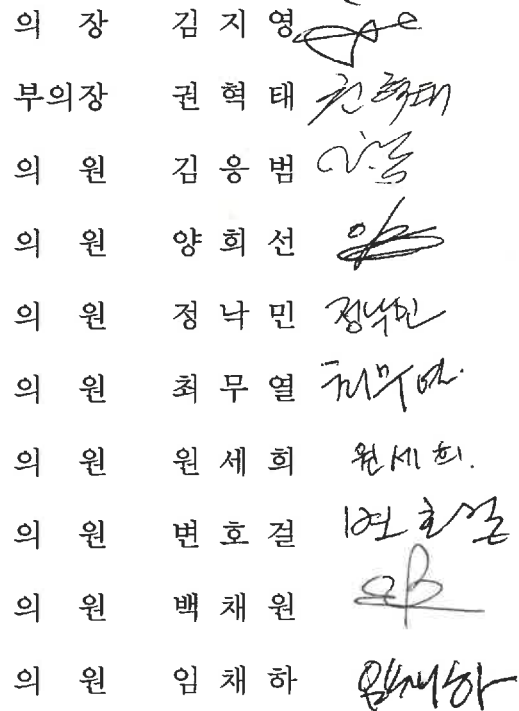 의 장 김 지 영
부의장 권 혁 태 권혁태
의 원 김 응 범
의 원 양 희 선
의 원 정 낙 민 정낙민
의 원 최 무 열 최무열
의 원 원 세 희 원세희.
의 원 변 호 걸 변호걸
의 원 백 채 원
의 원 임 채 하 임채하